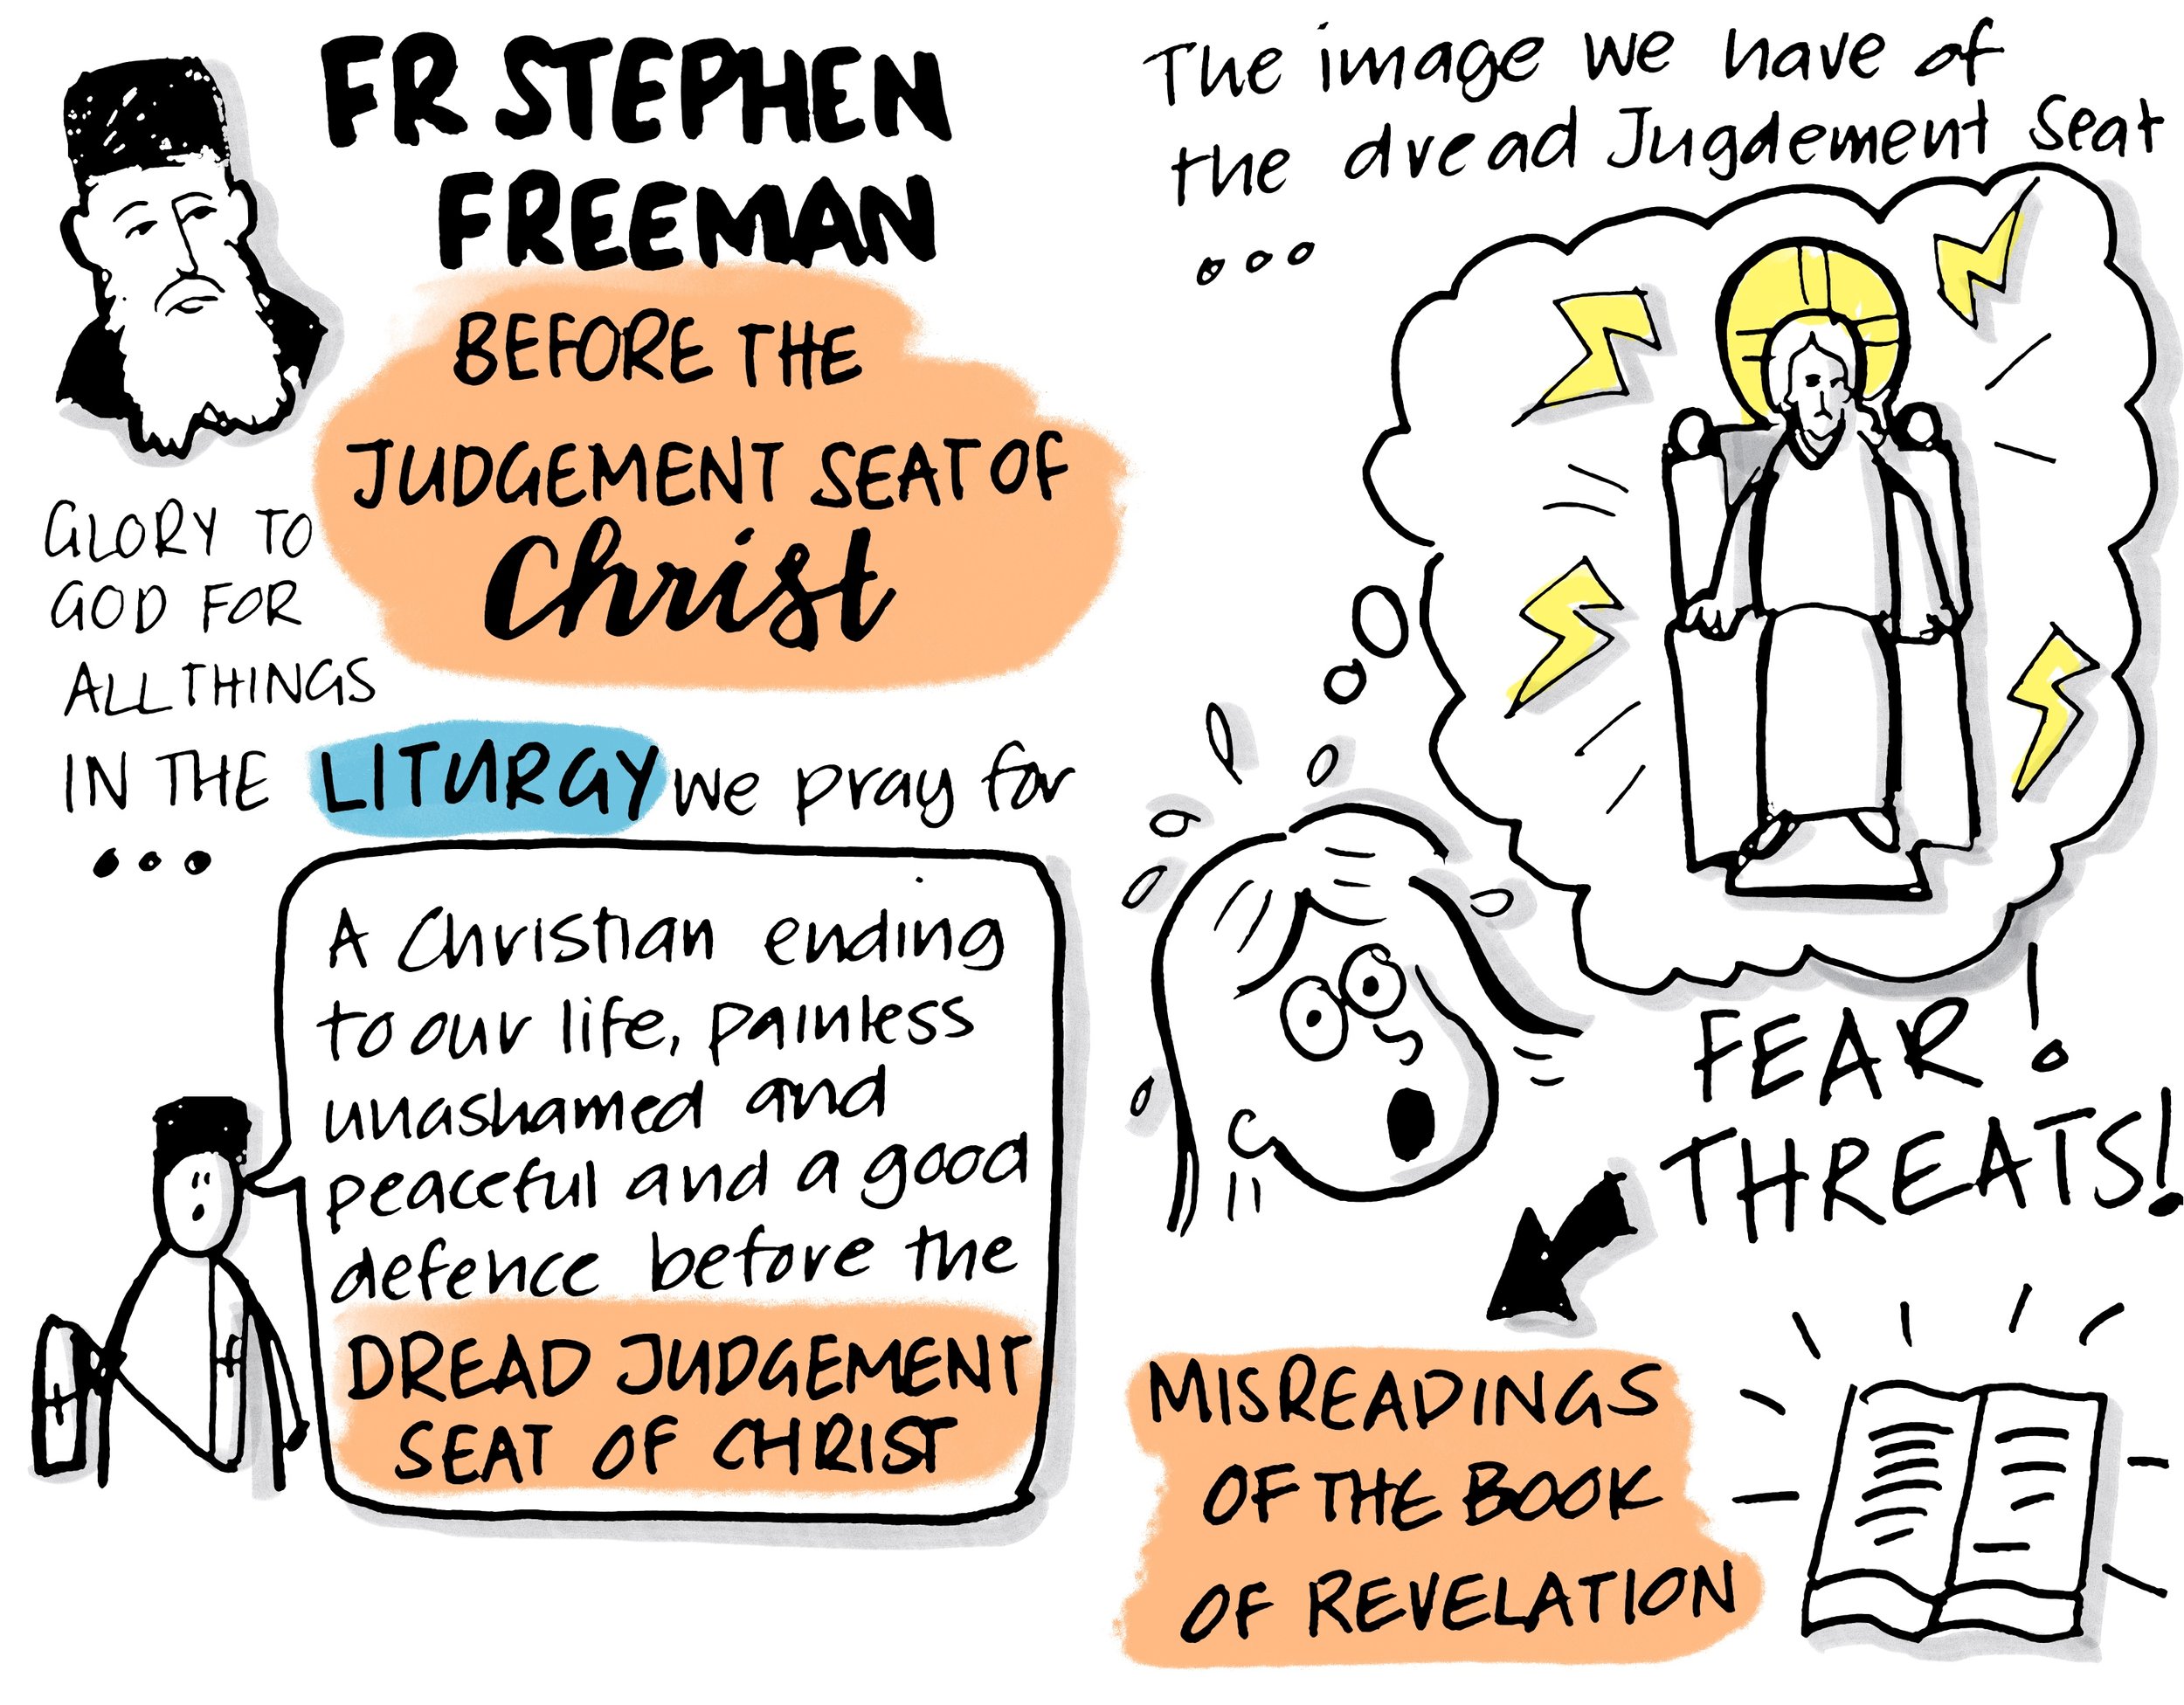 FR STEPHEN
FREEMAN
BEFORE THE
JUDGEMENT SEAT OF
Christ
GLORY TO
GOD FOR
ALL THINGS
IN THE LITURGY we pray for
...
A Christian ending
to our life, painless
unashamed and
peaceful and a good
defence before the
DREAD JUDGEMENT
SEAT OF CHRIST
The image we have of
the dread Jugdement Seat
...
FEAR!
THREATS!
MISREADINGS
OF THE BOOK
OF REVELATION